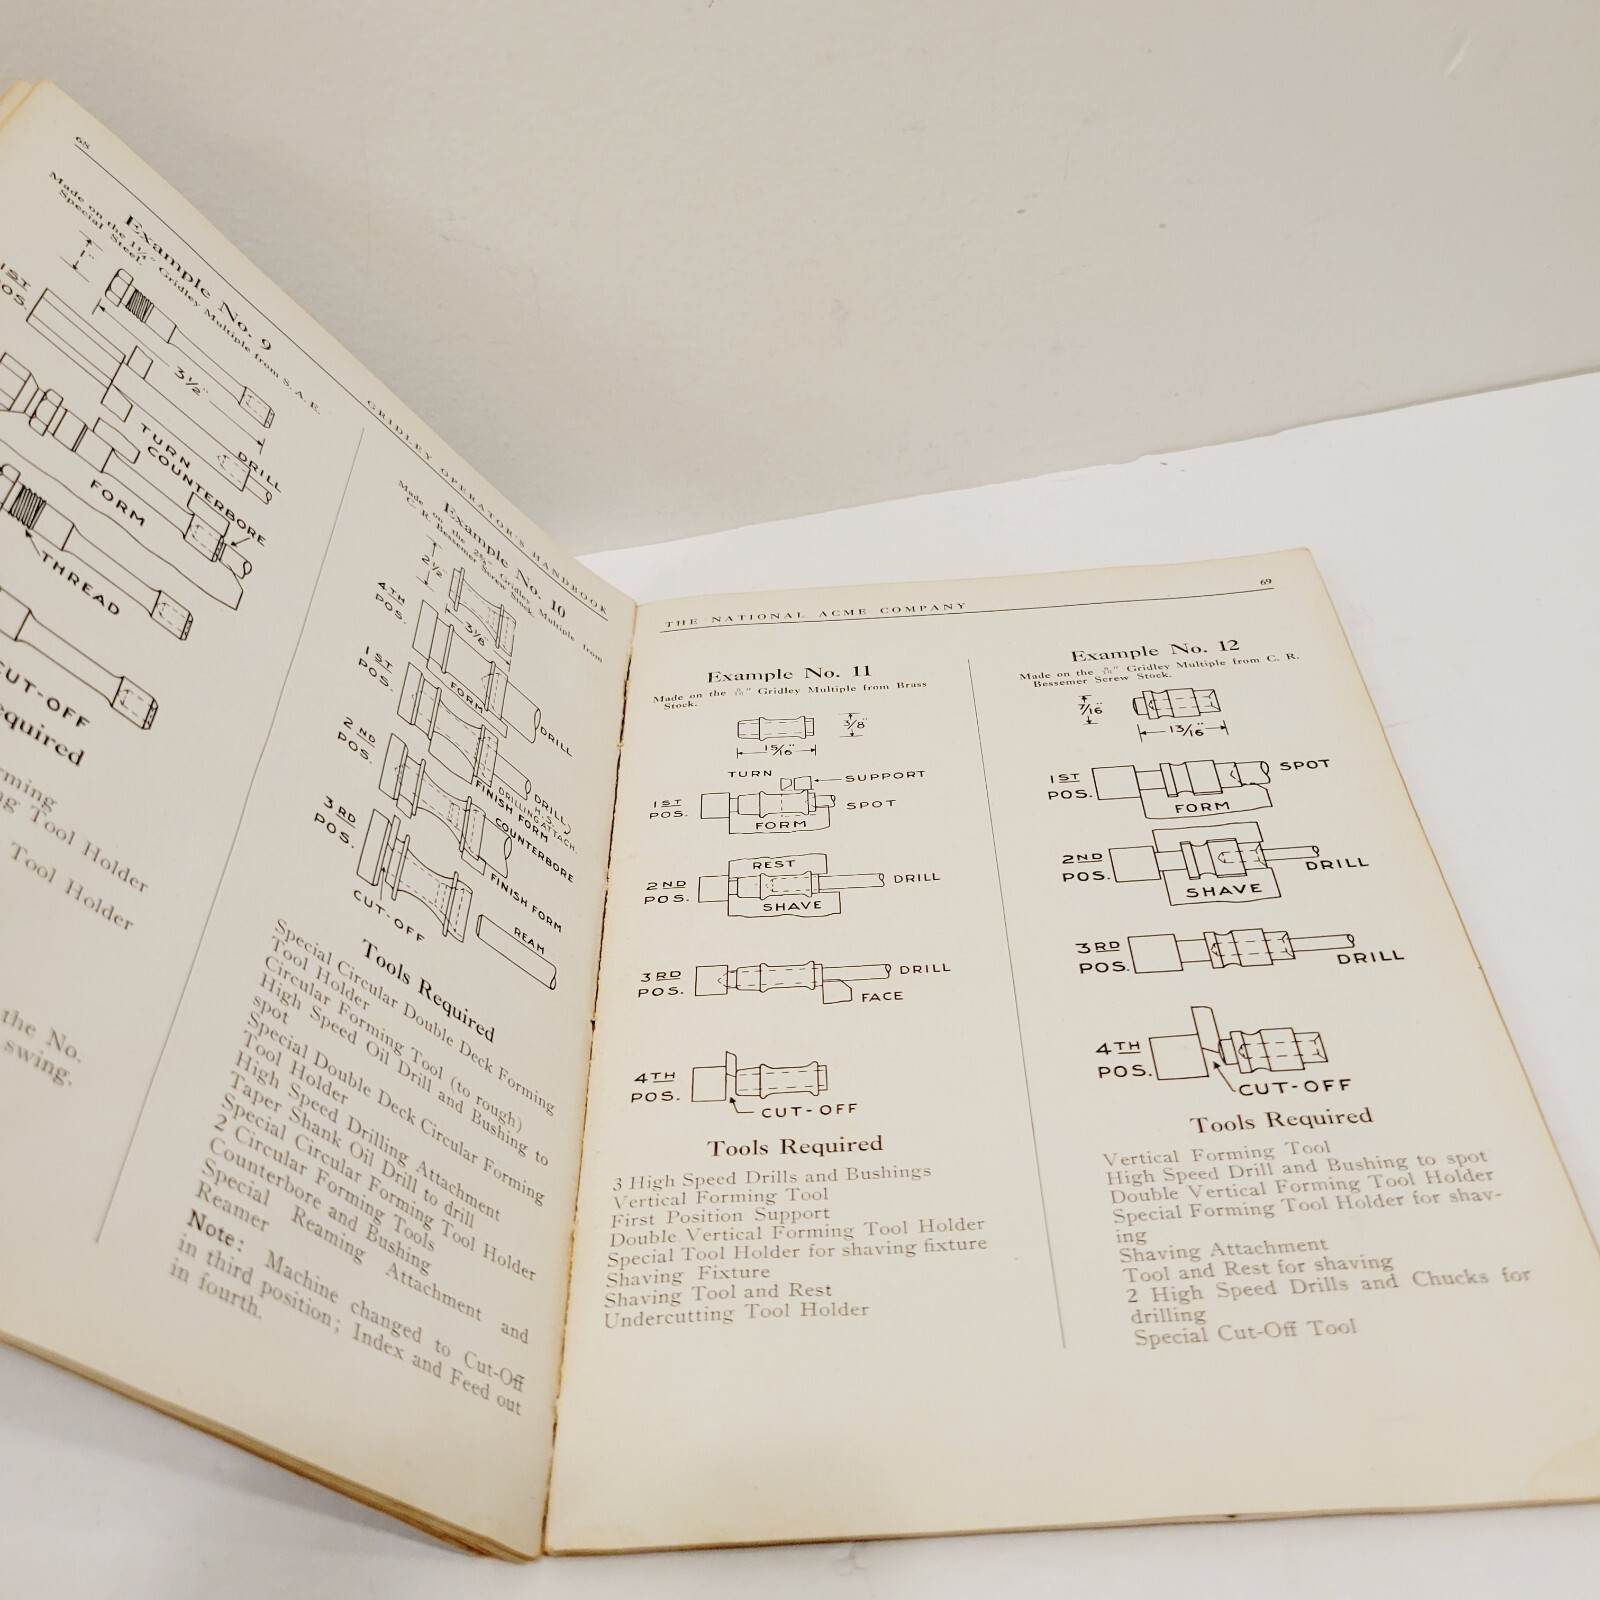 68
GRIDLEY OPERATOR'S HANDBOOK
Example No. 9
Made on the 1¼" Gridley Multiple from S. A. E.
Special Steel.
1"
3½"
1ST
POS.
DRILL
TURN
COUNTERBORE
FORM
COUNTERBORE
THREAD
CUT-OFF
Required
Forming
Tool Holder
Tool Holder
the No.
swing.
Example No. 10
Made on the Gridley Multiple from
C. R. Bessemer Screw Stock.
2½"
3⅛"
4TH
POS.
FORM
DRILL
1ST
POS.
DRILL
(H.S.
DRILLING ATTACH.)
FINISH FORM
2ND
POS.
COUNTERBORE
FINISH FORM
3RD
POS.
CUT-OFF
REAM
Tools Required
Special Circular Double Deck Forming
Tool Holder
Circular Forming Tool (to rough)
High Speed Oil Drill and Bushing to
spot
Special Double Deck Circular Forming
Tool Holder
High Speed Drilling Attachment
Taper Shank Oil Drill to drill
Special Circular Forming Tool Holder
2 Circular Forming Tools
Counterbore and Bushing
Special Reaming Attachment and
Reamer
Note: Machine changed to Cut-Off
in third position; Index and Feed out
in fourth.
THE NATIONAL ACME COMPANY
69
Example No. 11
Made on the Gridley Multiple from Brass
Stock.
3/8"
15/16"
TURN
SUPPORT
1ST
POS.
SPOT
FORM
REST
2ND
POS.
DRILL
SHAVE
3RD
POS.
DRILL
FACE
4TH
POS.
CUT-OFF
Tools Required
3 High Speed Drills and Bushings
Vertical Forming Tool
First Position Support
Double Vertical Forming Tool Holder
Special Tool Holder for shaving fixture
Shaving Fixture
Shaving Tool and Rest
Undercutting Tool Holder
Example No. 12
Made on the Gridley Multiple from C. R.
Bessemer Screw Stock.
7/16"
13/16"
1ST
POS.
SPOT
FORM
2ND
POS.
DRILL
SHAVE
3RD
POS.
DRILL
4TH
POS.
CUT-OFF
Tools Required
Vertical Forming Tool
High Speed Drill and Bushing to spot
Double Vertical Forming Tool Holder
Special Forming Tool Holder for shav-
ing
Shaving Attachment
Tool and Rest for shaving
2 High Speed Drills and Chucks for
drilling
Special Cut-Off Tool